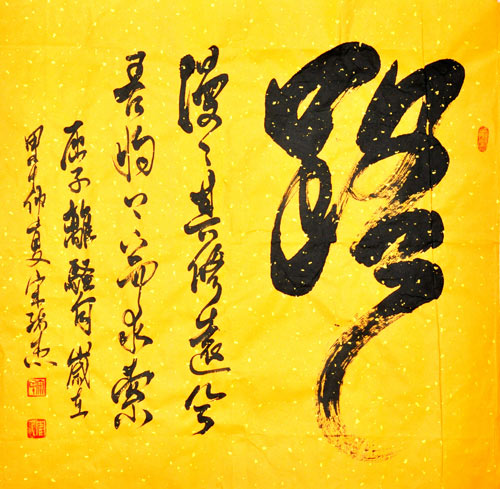 路
漫漫其修遠兮
吾将上下而求索
屈子離騷句 歲在
甲午仲夏 宋瑞杰